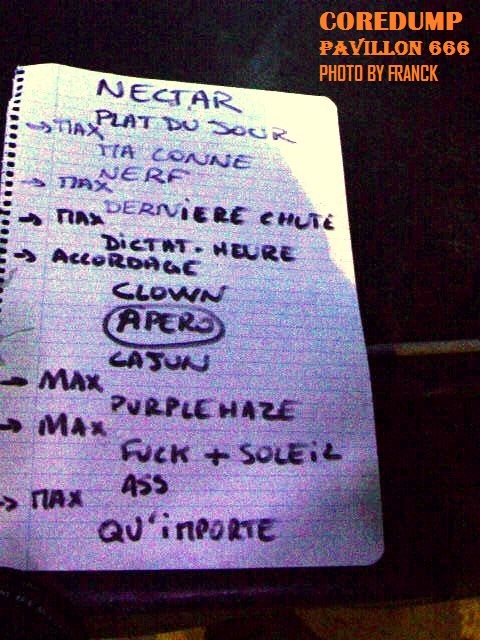 COREDUMP
PAVILLON 666
PHOTO BY FRANCK
NECTAR
PLAT DU JOUR
→ MAX
MA CONNE
NERF
→ MAX
DERNIERE CHUTE
→ MAX
DICTAT-HEURE
→ ACCORDAGE
CLOWN
APERO
CAJUN
→ MAX
PURPLE HAZE
→ MAX
FUCK + SOLEIL
ASS
→ MAX
QU'IMPORTE